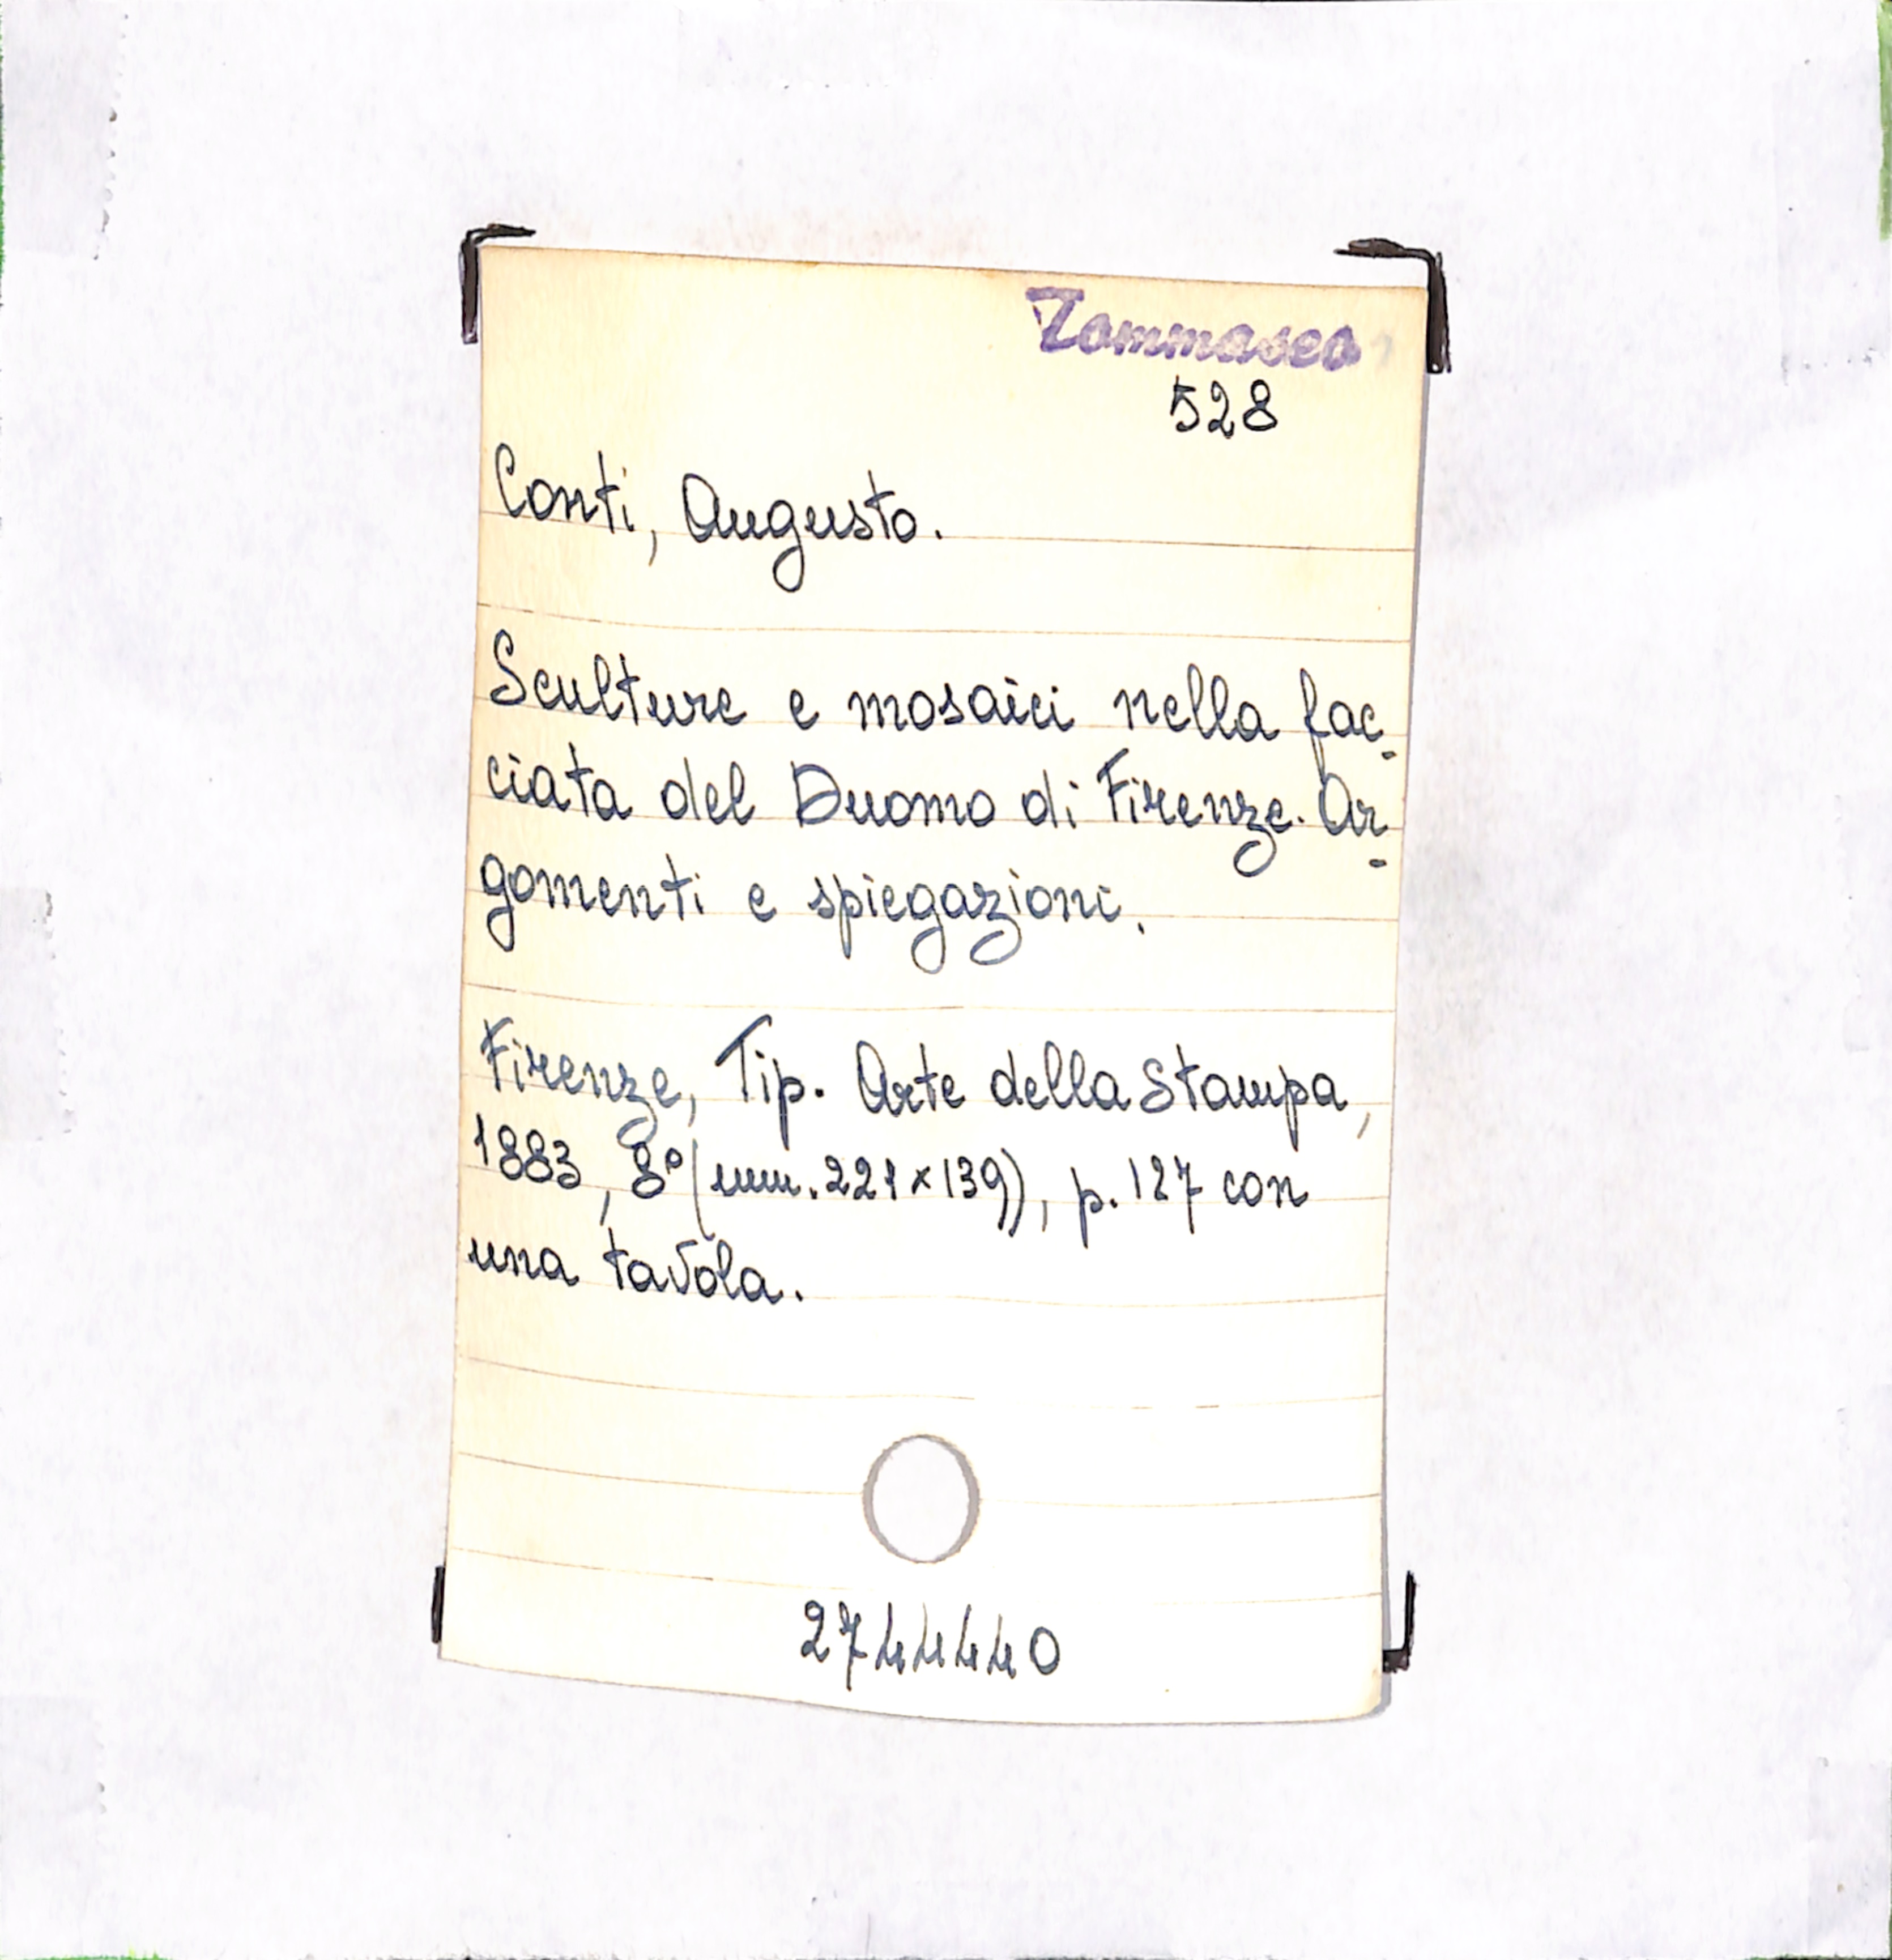 Tommaseo
528
Conti, Augusto.
Sculture e mosaici nella fac-
ciata del Duomo di Firenze. Ar-
gomenti e spiegazioni.
Firenze, Tip. Arte della Stampa,
1883, 8° (mm. 221×139), p. 127 con
una tavola.
2744440